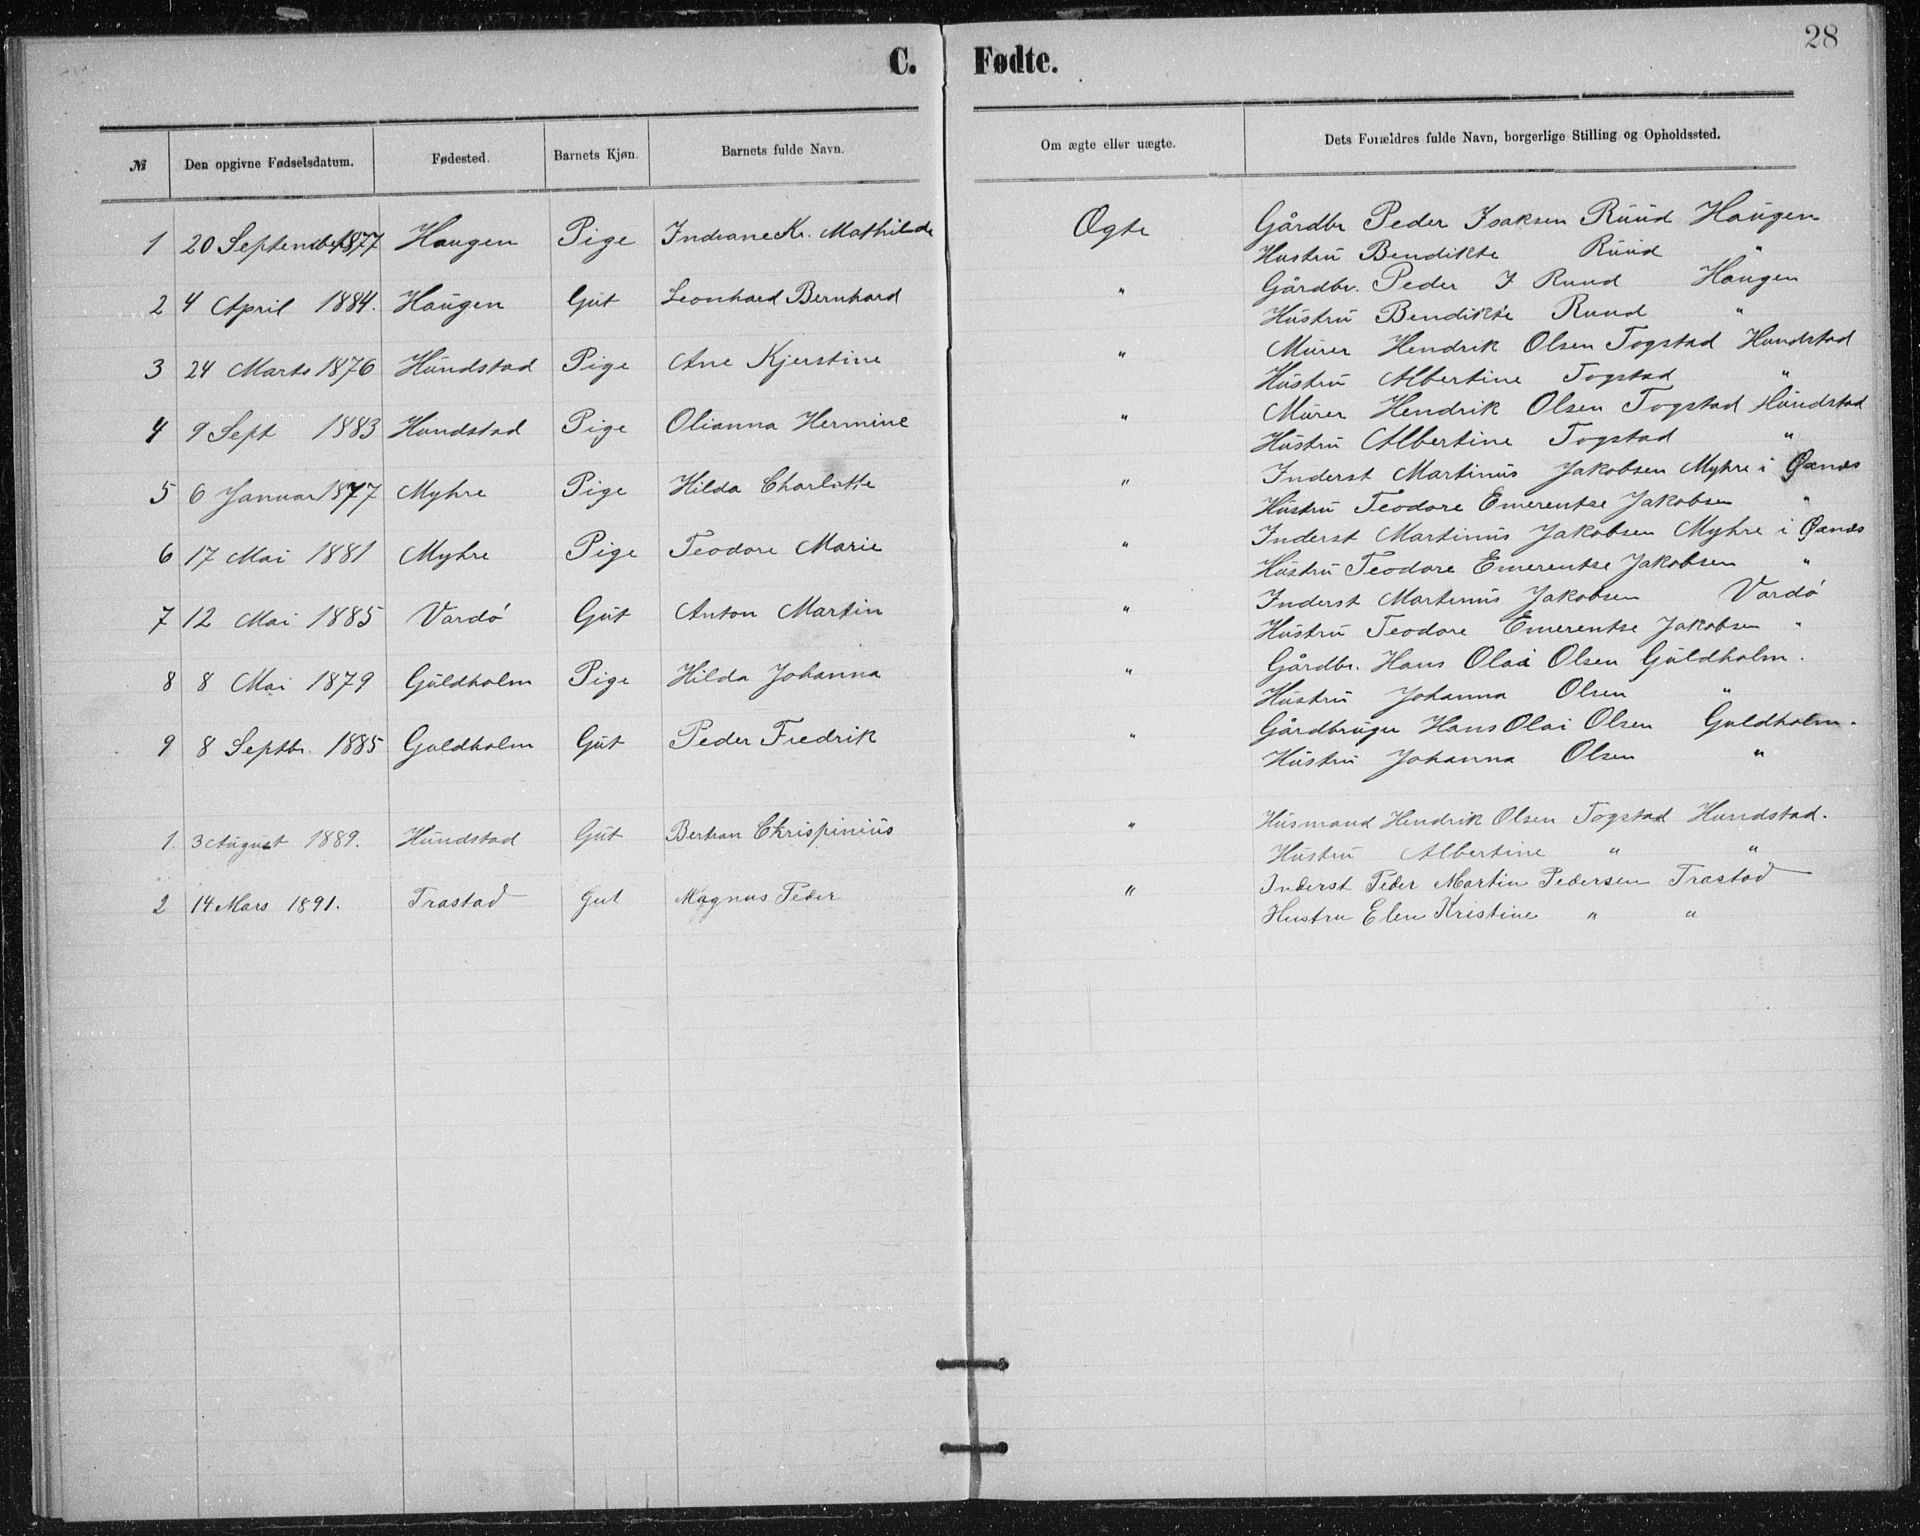 28
C. Fødte.
№ Den opgivne Fødselsdatum. Fødested. Barnets Kjøn. Barnets fulde Navn. Om ægte eller uægte. Dets Forældres fulde Navn, borgerlige Stilling og Opholdssted.
1 20 September 1877 Haugen Pige Indiane Kr. Mathilde Ægte Gårdbr Peder Isaksen Ruud Haugen
Hustru Bendikte Ruud "
2 4 April 1884. Haugen Gut Leonhard Bernhard " Gårdbr. Peder I Ruud Haugen
Hustru Bendikte Ruud "
3 24 Marts 1876 Hundstad Pige Ane Kjerstine " Murer Hendrik Olsen Togstad Hundstad
Hustru Albertine Togstad "
4 9 Sept 1883 Hundstad Pige Olianna Hermine " Murer Hendrik Olsen Togstad Hundstad
Hustru Albertine Togstad "
5 6 Januar 1877 Myhre Pige Hilda Charlotte " Inderst Martinus Jakobsen Myhre i
Hustru Teodore Emerentse Jakobsen "
6 17 Mai 1881 Myhre Pige Teodore Marie " Inderst Martinus Jakobsen Myhre i
Hustru Teodore Emerentse Jakobsen "
7 12 Mai 1885 Vardø Gut Anton Martin " Inderst Martinus Jakobsen Vardø
Hustru Teodore Emerentse Jakobsen "
8 8 Mai 1879 Guldholm Pige Hilda Johanna " Gårdbr. Hans Olai Olsen Guldholm.
Hustru Johanna Olsen "
9 8 Septbr. 1885 Guldholm Gut Peder Fredrik " Gårdbruger Hans Olai Olsen Guldholm.
Hustru Johanna Olsen "
1 3 August 1889. Hundstad Gut Bertean Chrispinius " Husmand Hendrik Olsen Togstad Hundstad.
Hustru Albertine " "
2 14 Mars 1891. Trastad Gut Magnus Peder " Inderst Peder Martin Pedersen Trastad
Hustru Elen Kristine " "